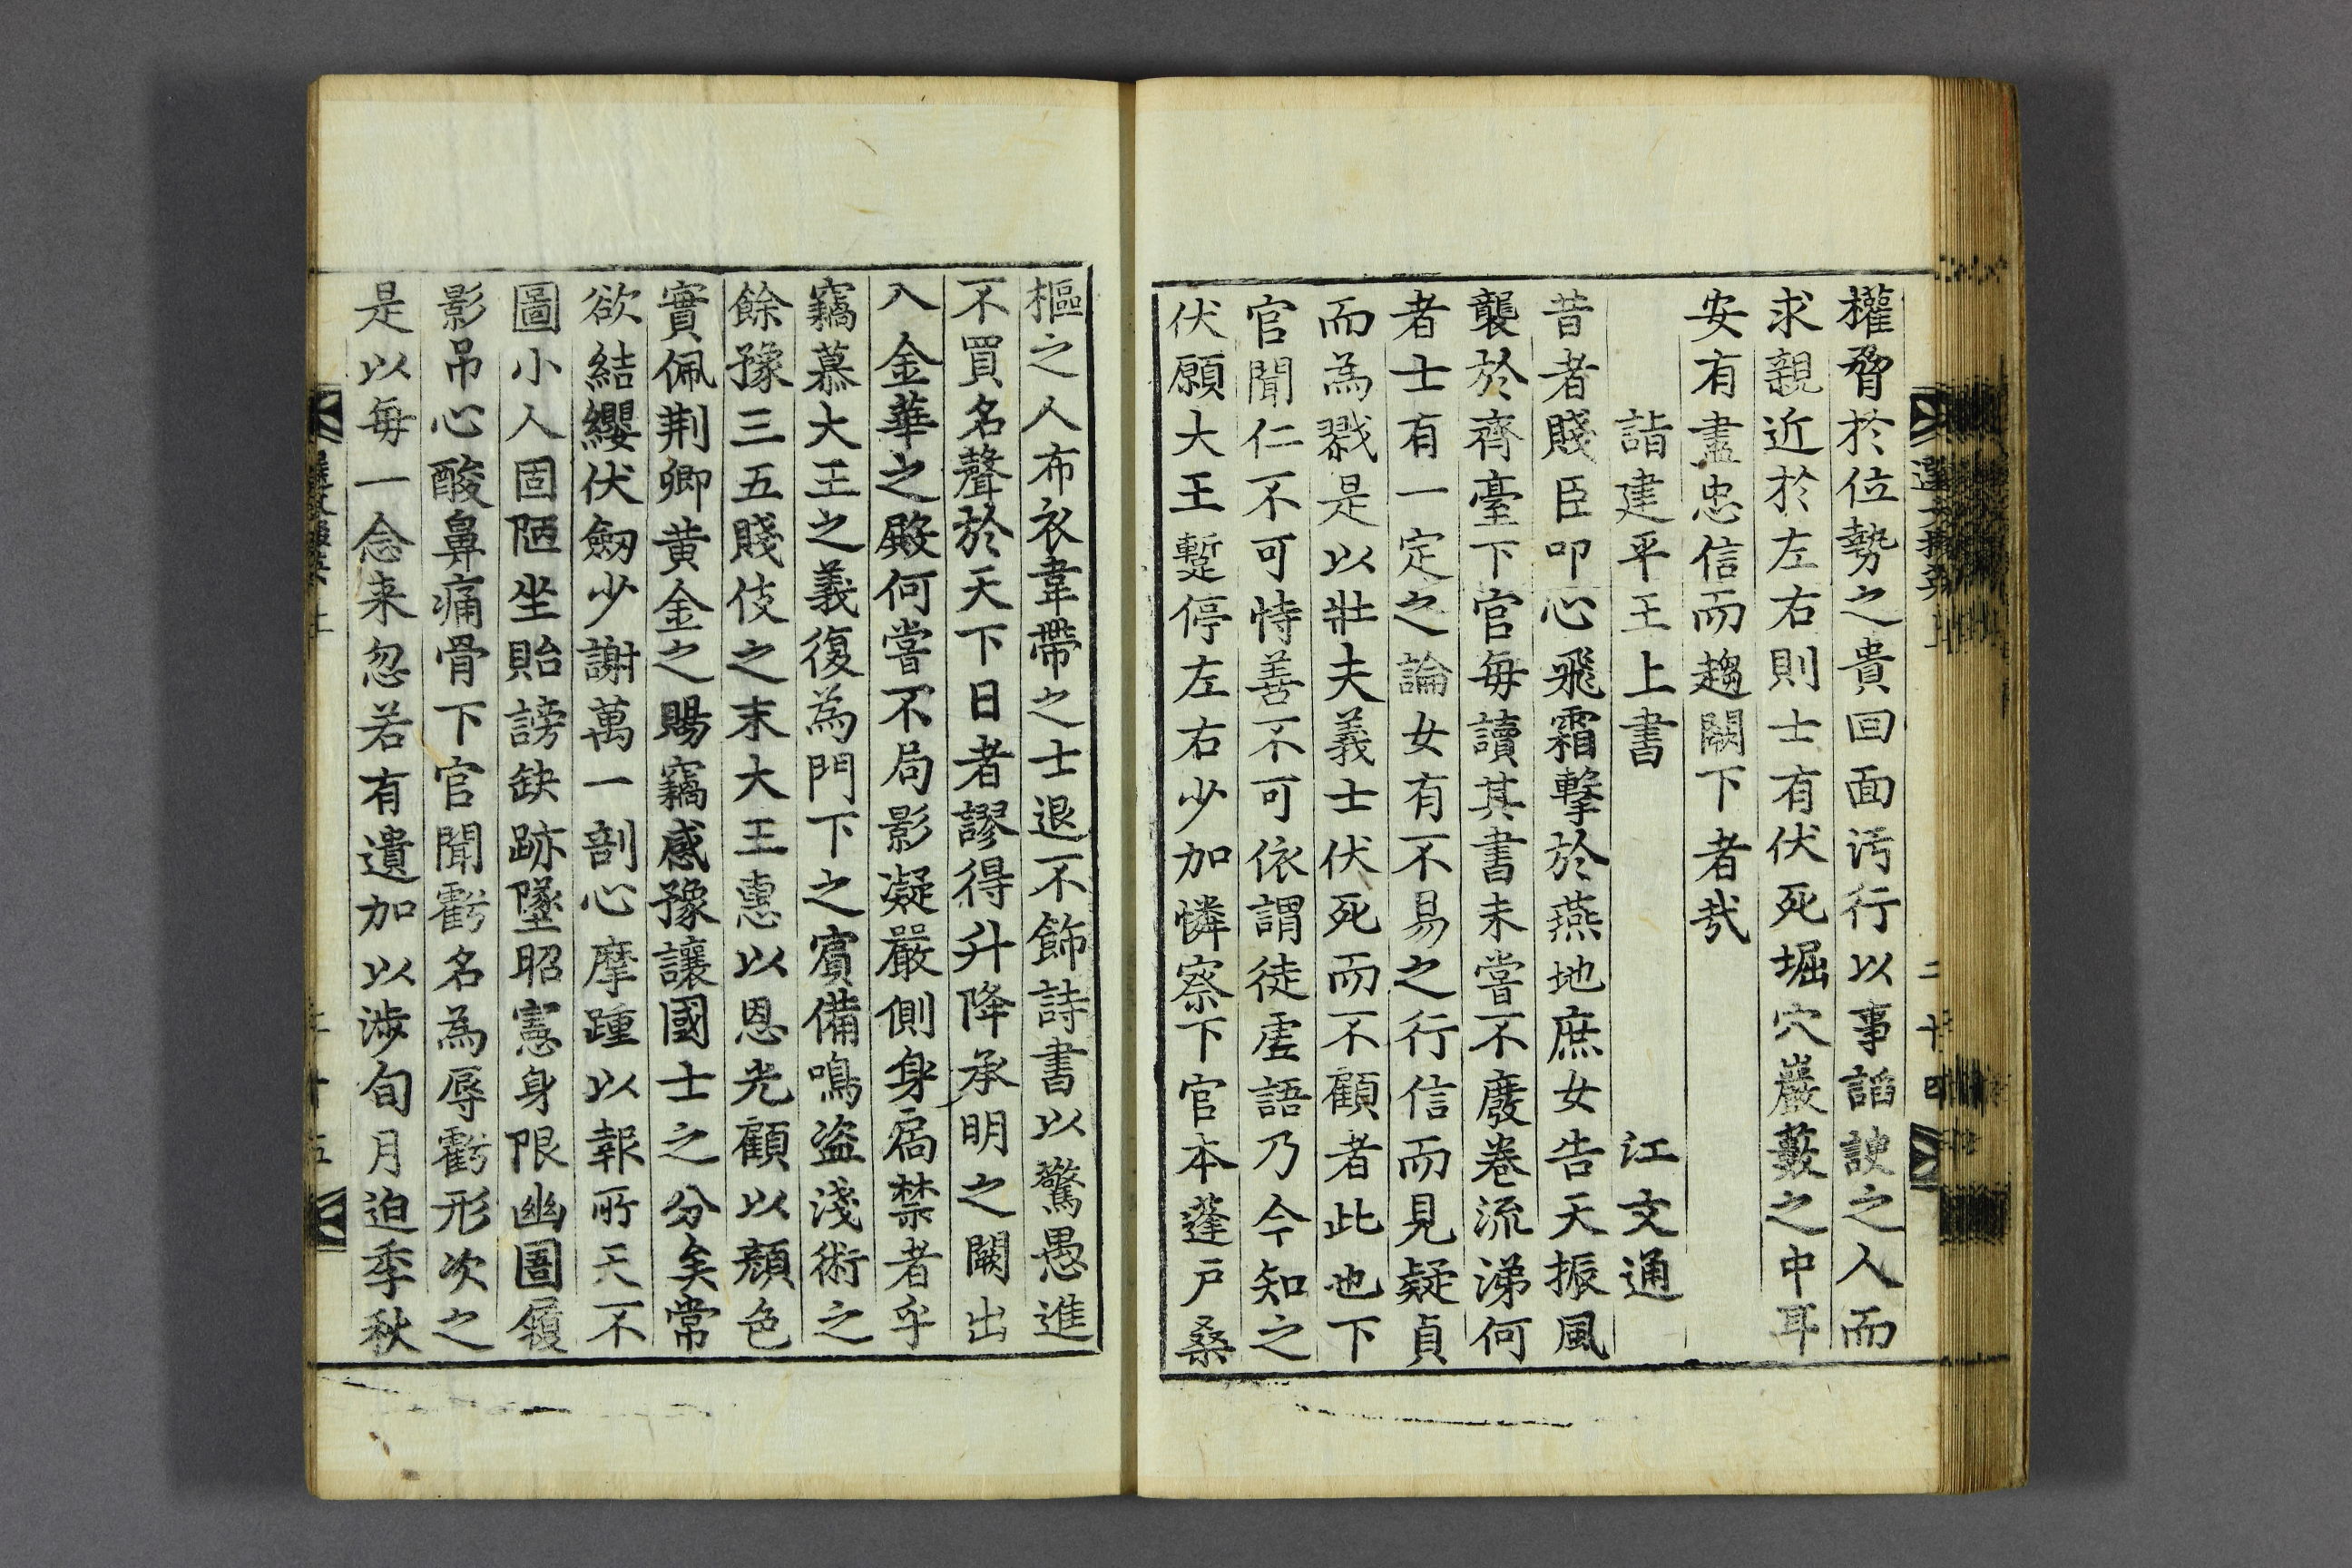 權脅於位勢之貴回面汚行以事謟諛之人而
求親近於左右則士有伏死堀穴巖藪之中耳
安有盡忠信而趨闕下者哉
詣建平王上書 江文通
昔者賤臣叩心飛霜擊於燕地庶女告天振風
襲於齊臺下官每讀其書未嘗不廢卷流涕何
者士有一定之論女有不易之行信而見疑貞
而為戮是以壯夫義士伏死而不顧者此也下
官聞仁不可恃善不可依謂徒虛語乃今知之
伏願大王蹔停左右少加憐察下官本蓬戶桑
二十四
樞之人布衣韋帶之士退不飾詩書以驚愚進
不買名聲於天下日者謬得升降承明之闕出
入金華之殿何嘗不局影凝嚴側身扃禁者乎
竊慕大王之義復為門下之賓備鳴盜淺術之
餘豫三五賤伎之末大王惠以恩光顧以顏色
實佩荆卿黄金之賜竊感豫讓國士之分矣常
欲結纓伏劒少謝萬一剖心摩踵以報所天不
圖小人固陋坐貽謗缺跡墜昭憲身限幽圄履
影吊心酸鼻痛骨下官聞虧名為辱虧形次之
是以每一念来忽若有遺加以涉旬月迫季秋